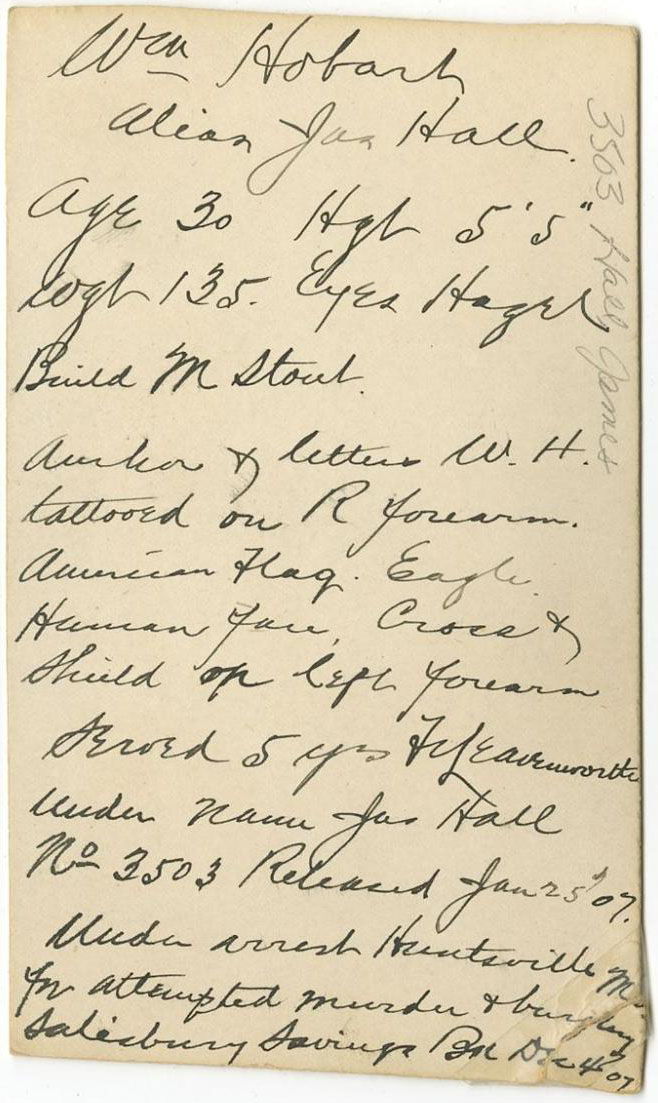 Wm Hobart
Alias Jas Hall.
Age 30 Hgt 5'5"
Wgt 135. Eyes Hazel
Build M Stout.
Anchor & letters W. H.
tattooed on R forearm.
American Flag. Eagle.
Human face, Cross &
Shield on left forearm
Served 5 yrs Ft Leavenworth
Under name Jas Hall
No 3503 Released Jan 25 '07.
Under arrest Huntsville Mo
for attempted murder & burglary
Salisbury Savings Bk Dec 4 07
3503 Hall, James